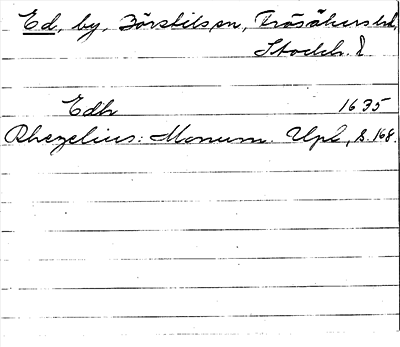 Ed, by, Börstils sn, Frösåkers hd,
Stockh. l.
Edh 1635
Rhezelius: Monum. Upl., s. 168.